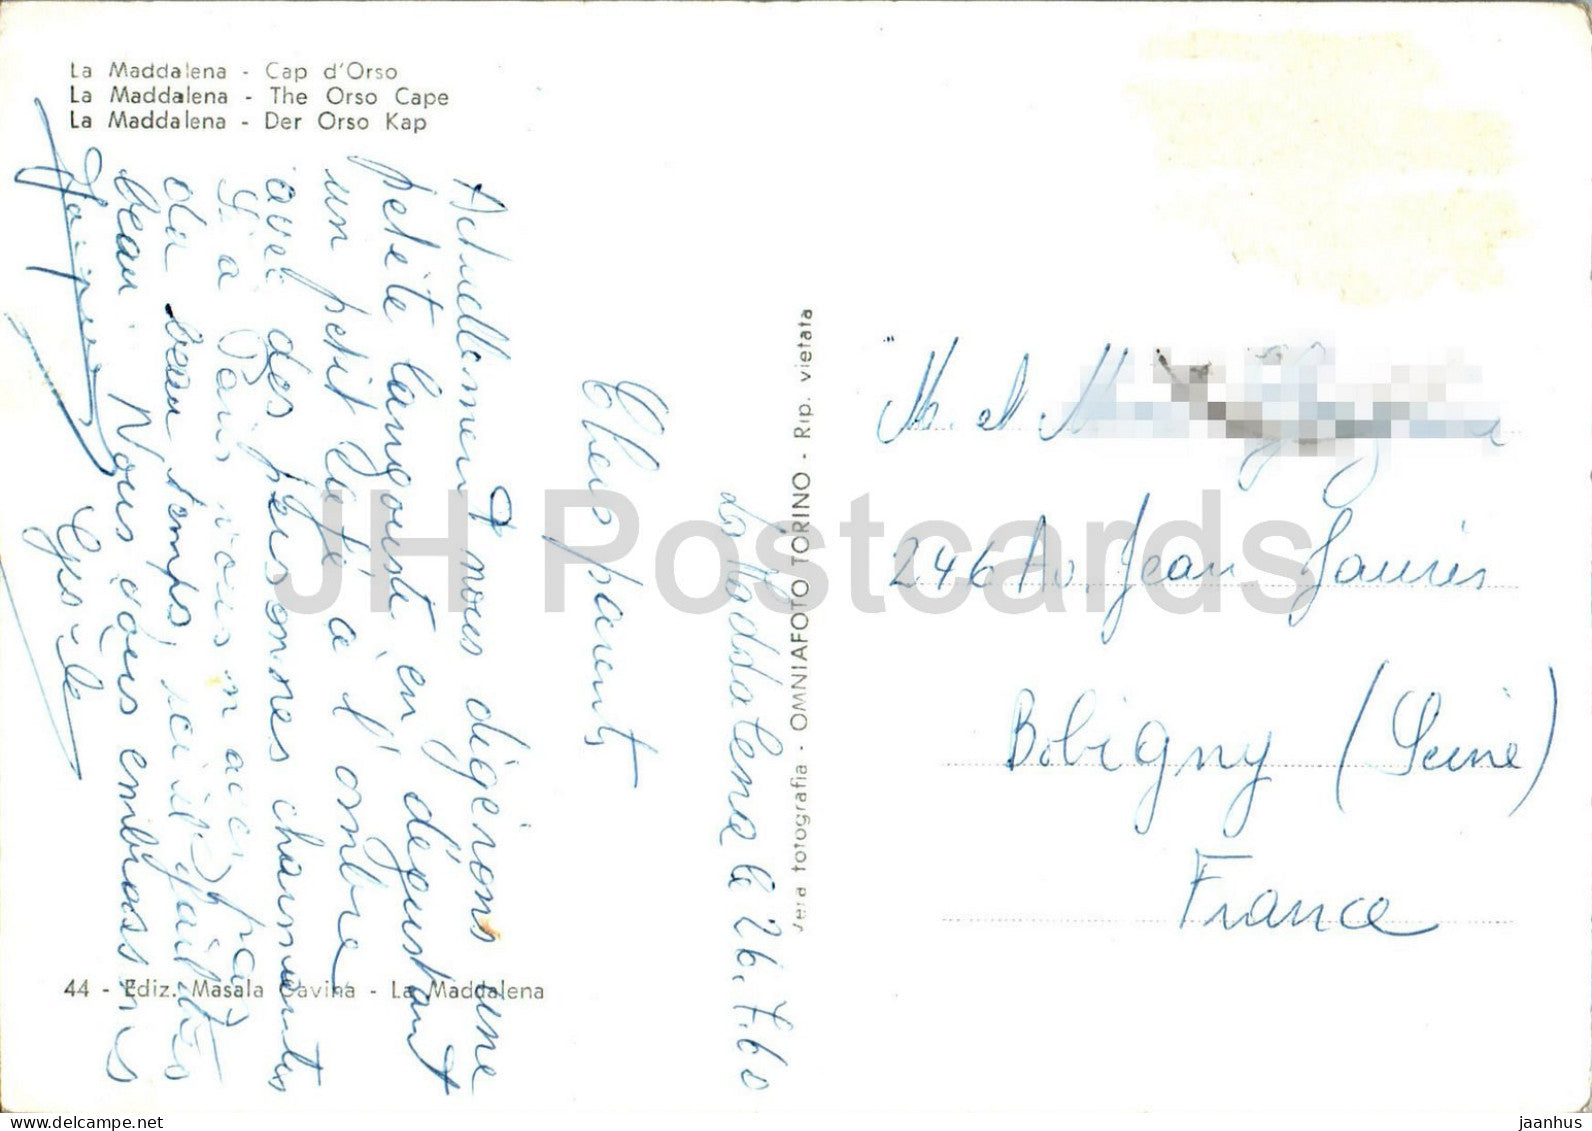 La Maddalena - Cap d'Orso
La Maddalena - The Orso Cape
La Maddalena - Der Orso Kap
La Maddalena le 26.7.60
Chers parents
Actuellement nous digérons une
petite langouste en dégustant
un petit café à l'ombre
avec des personnes charmantes
Si à Paris vous n'avez pas
du beau temps, ici il fait très
beau. Nous vous embrassons
Gisèle
44 - Ediz. Masala Gavina - La Maddalena
Vera fotografia - OMNIAFOTO TORINO - Rip. vietata
M. et M
246 Av. Jean Jaurès
Bobigny (Seine)
France
JH Postcards
jaanhus
www.delcampe.net